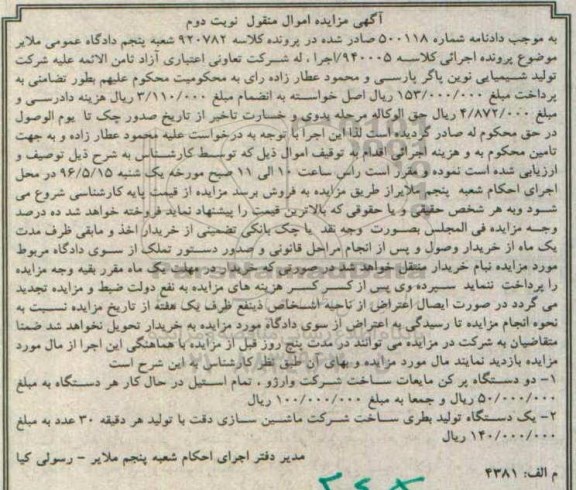 آگهی مزایده اموال منقول نوبت دوم
به موجب دادنامه شماره ۵۰۰۱۱۸ صادر شده در پرونده کلاسه ۹۲۰۷۸۲ شعبه پنجم دادگاه عمومی ملایر
موضوع پرونده اجرائی کلاسه ۹۴۰۰۰۵/اجرا ، له شرکت تعاونی اعتباری آزاد ثامن الائمه علیه شرکت
تولید شیمیایی نوین پاگر پارسی و محمود عطار زاده رای به محکومیت محکوم علیهم بطور تضامنی به
پرداخت مبلغ ۱۵۳/۰۰۰/۰۰۰ ریال اصل خواسته به انضمام مبلغ ۳/۱۱۰/۰۰۰ ریال هزینه دادرسی و
مبلغ ۴/۸۷۲/۰۰۰ ریال حق الوکاله مرحله بدوی و خسارت تاخیر از تاریخ صدور چک تا یوم الوصول
در حق محکوم له صادر گردیده است لذا این اجرا با توجه به درخواست علیه محمود عطار زاده و به جهت
تامین محکوم به و هزینه اجرائی اقدام به توقیف اموال ذیل که توسط کارشناس به شرح ذیل توصیف و
ارزیابی شده است نموده و مقرر است راس ساعت ۱۰ الی ۱۱ صبح مورخه یک شنبه ۹۶/۵/۱۵ در محل
اجرای احکام شعبه پنجم ملایر از طریق مزایده به فروش برسد مزایده از قیمت پایه کارشناسی شروع می
شود وبه هر شخص حقیقی و یا حقوقی که بالاترین قیمت را پیشنهاد نماید فروخته خواهد شد ده درصد
وجه مزایده فی المجلس بصورت وجه نقد یا چک بانکی تضمینی از خریدار اخذ و مابقی ظرف مدت
یک ماه از خریدار وصول و پس از انجام مراحل قانونی و صدور دستور تملک از سوی دادگاه مربوط
مورد مزایده بنام خریدار منتقل خواهد شد در صورتی که خریدار در مهلت یک ماه مقرر بقیه وجه مزایده
را پرداخت ننماید سپرده وی پس از کسر هزینه های مزایده به نفع دولت ضبط و مزایده تجدید
می گردد در صورت ایصال اعتراض از ناحیه اشخاص ذینفع ظرف یک هفته از تاریخ مزایده نسبت به
نحوه انجام مزایده تا رسیدگی به اعتراض از سوی دادگاه مورد مزایده به خریدار تحویل نخواهد شد ضمنا
متقاضیان به شرکت در مزایده می توانند در مدت پنج روز قبل از مزایده با هماهنگی این اجرا از مال مورد
مزایده بازدید نمایند مال مورد مزایده و بهای آن طبق نظر کارشناس به این شرح است
۱- دو دستگاه پر کن مایعات ساخت شرکت وارژو . تمام استیل در حال کار هر دستگاه به مبلغ
۵۰/۰۰۰/۰۰۰ ریال و جمعا به مبلغ ۱۰۰/۰۰۰/۰۰۰ ریال
۲- یک دستگاه تولید بطری ساخت شرکت ماشین سازی دقت با تولید هر دقیقه ۳۰ عدد به مبلغ
۱۴۰/۰۰۰/۰۰۰ ریال
مدیر دفتر اجرای احکام شعبه پنجم ملایر - رسولی کیا
م الف: ۴۳۸۱